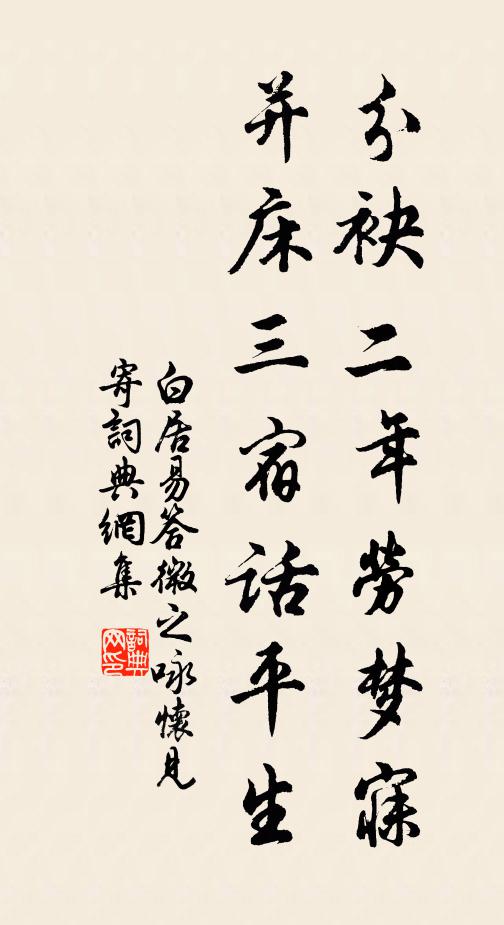 分袂二年劳梦寐
并床三宿话平生
白居易答微之咏怀见
寄词典網集
詞典网印